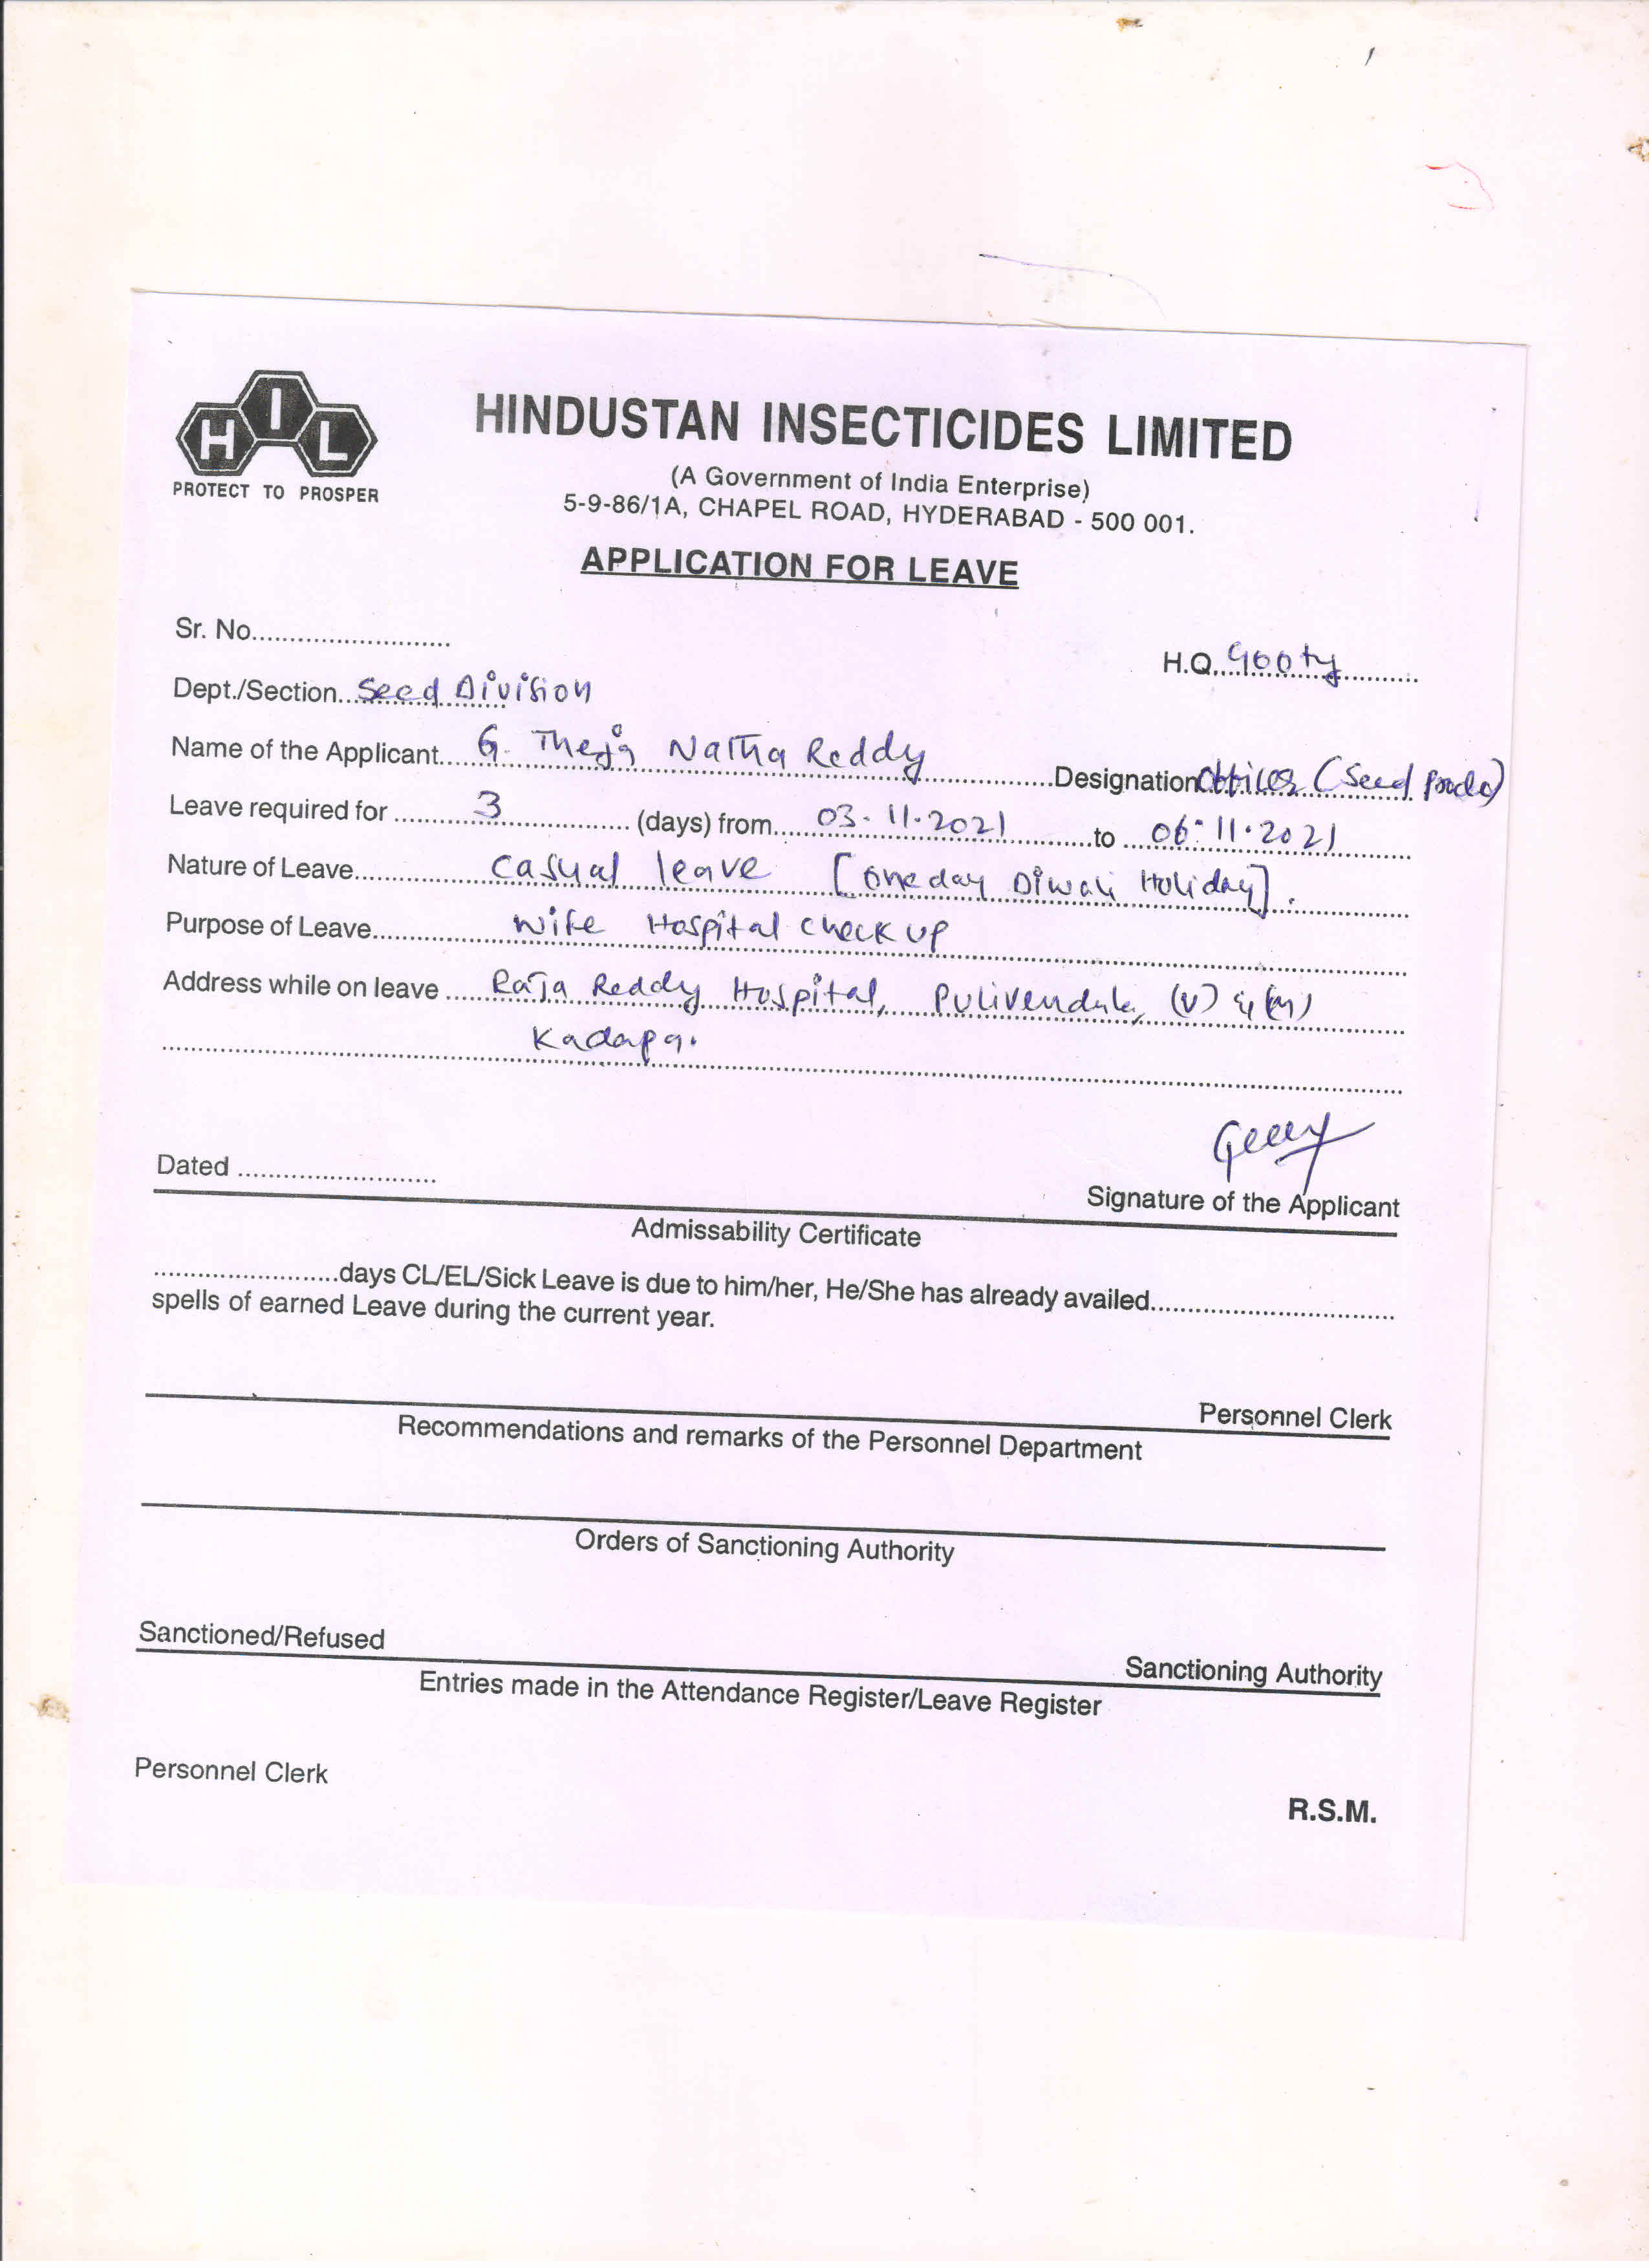 HIL
PROTECT TO PROSPER
HINDUSTAN INSECTICIDES LIMITED
(A Government of India Enterprise)
5-9-86/1A, CHAPEL ROAD, HYDERABAD - 500 001.
APPLICATION FOR LEAVE
Sr. No..........................
H.Q. Gooty
Dept./Section... Seed Division
Name of the Applicant..... G. Theja Natha Reddy ..........Designation Officer (Seed Prodn)
Leave required for ..... 3 ..... (days) from..... 03.11.2021 .....to ..... 06.11.2021
Nature of Leave..... Casual leave [one day Diwali Holiday].
Purpose of Leave..... Wife Hospital check up
Address while on leave ..... Raja Reddy Hospital, Pulivendula, (V) & (M)
Kadapa.
Dated ..........................
Signature of the Applicant
Admissability Certificate
.........................days CL/EL/Sick Leave is due to him/her, He/She has already availed.................................
spells of earned Leave during the current year.
Personnel Clerk
Recommendations and remarks of the Personnel Department
Orders of Sanctioning Authority
Sanctioned/Refused
Sanctioning Authority
Entries made in the Attendance Register/Leave Register
Personnel Clerk
R.S.M.